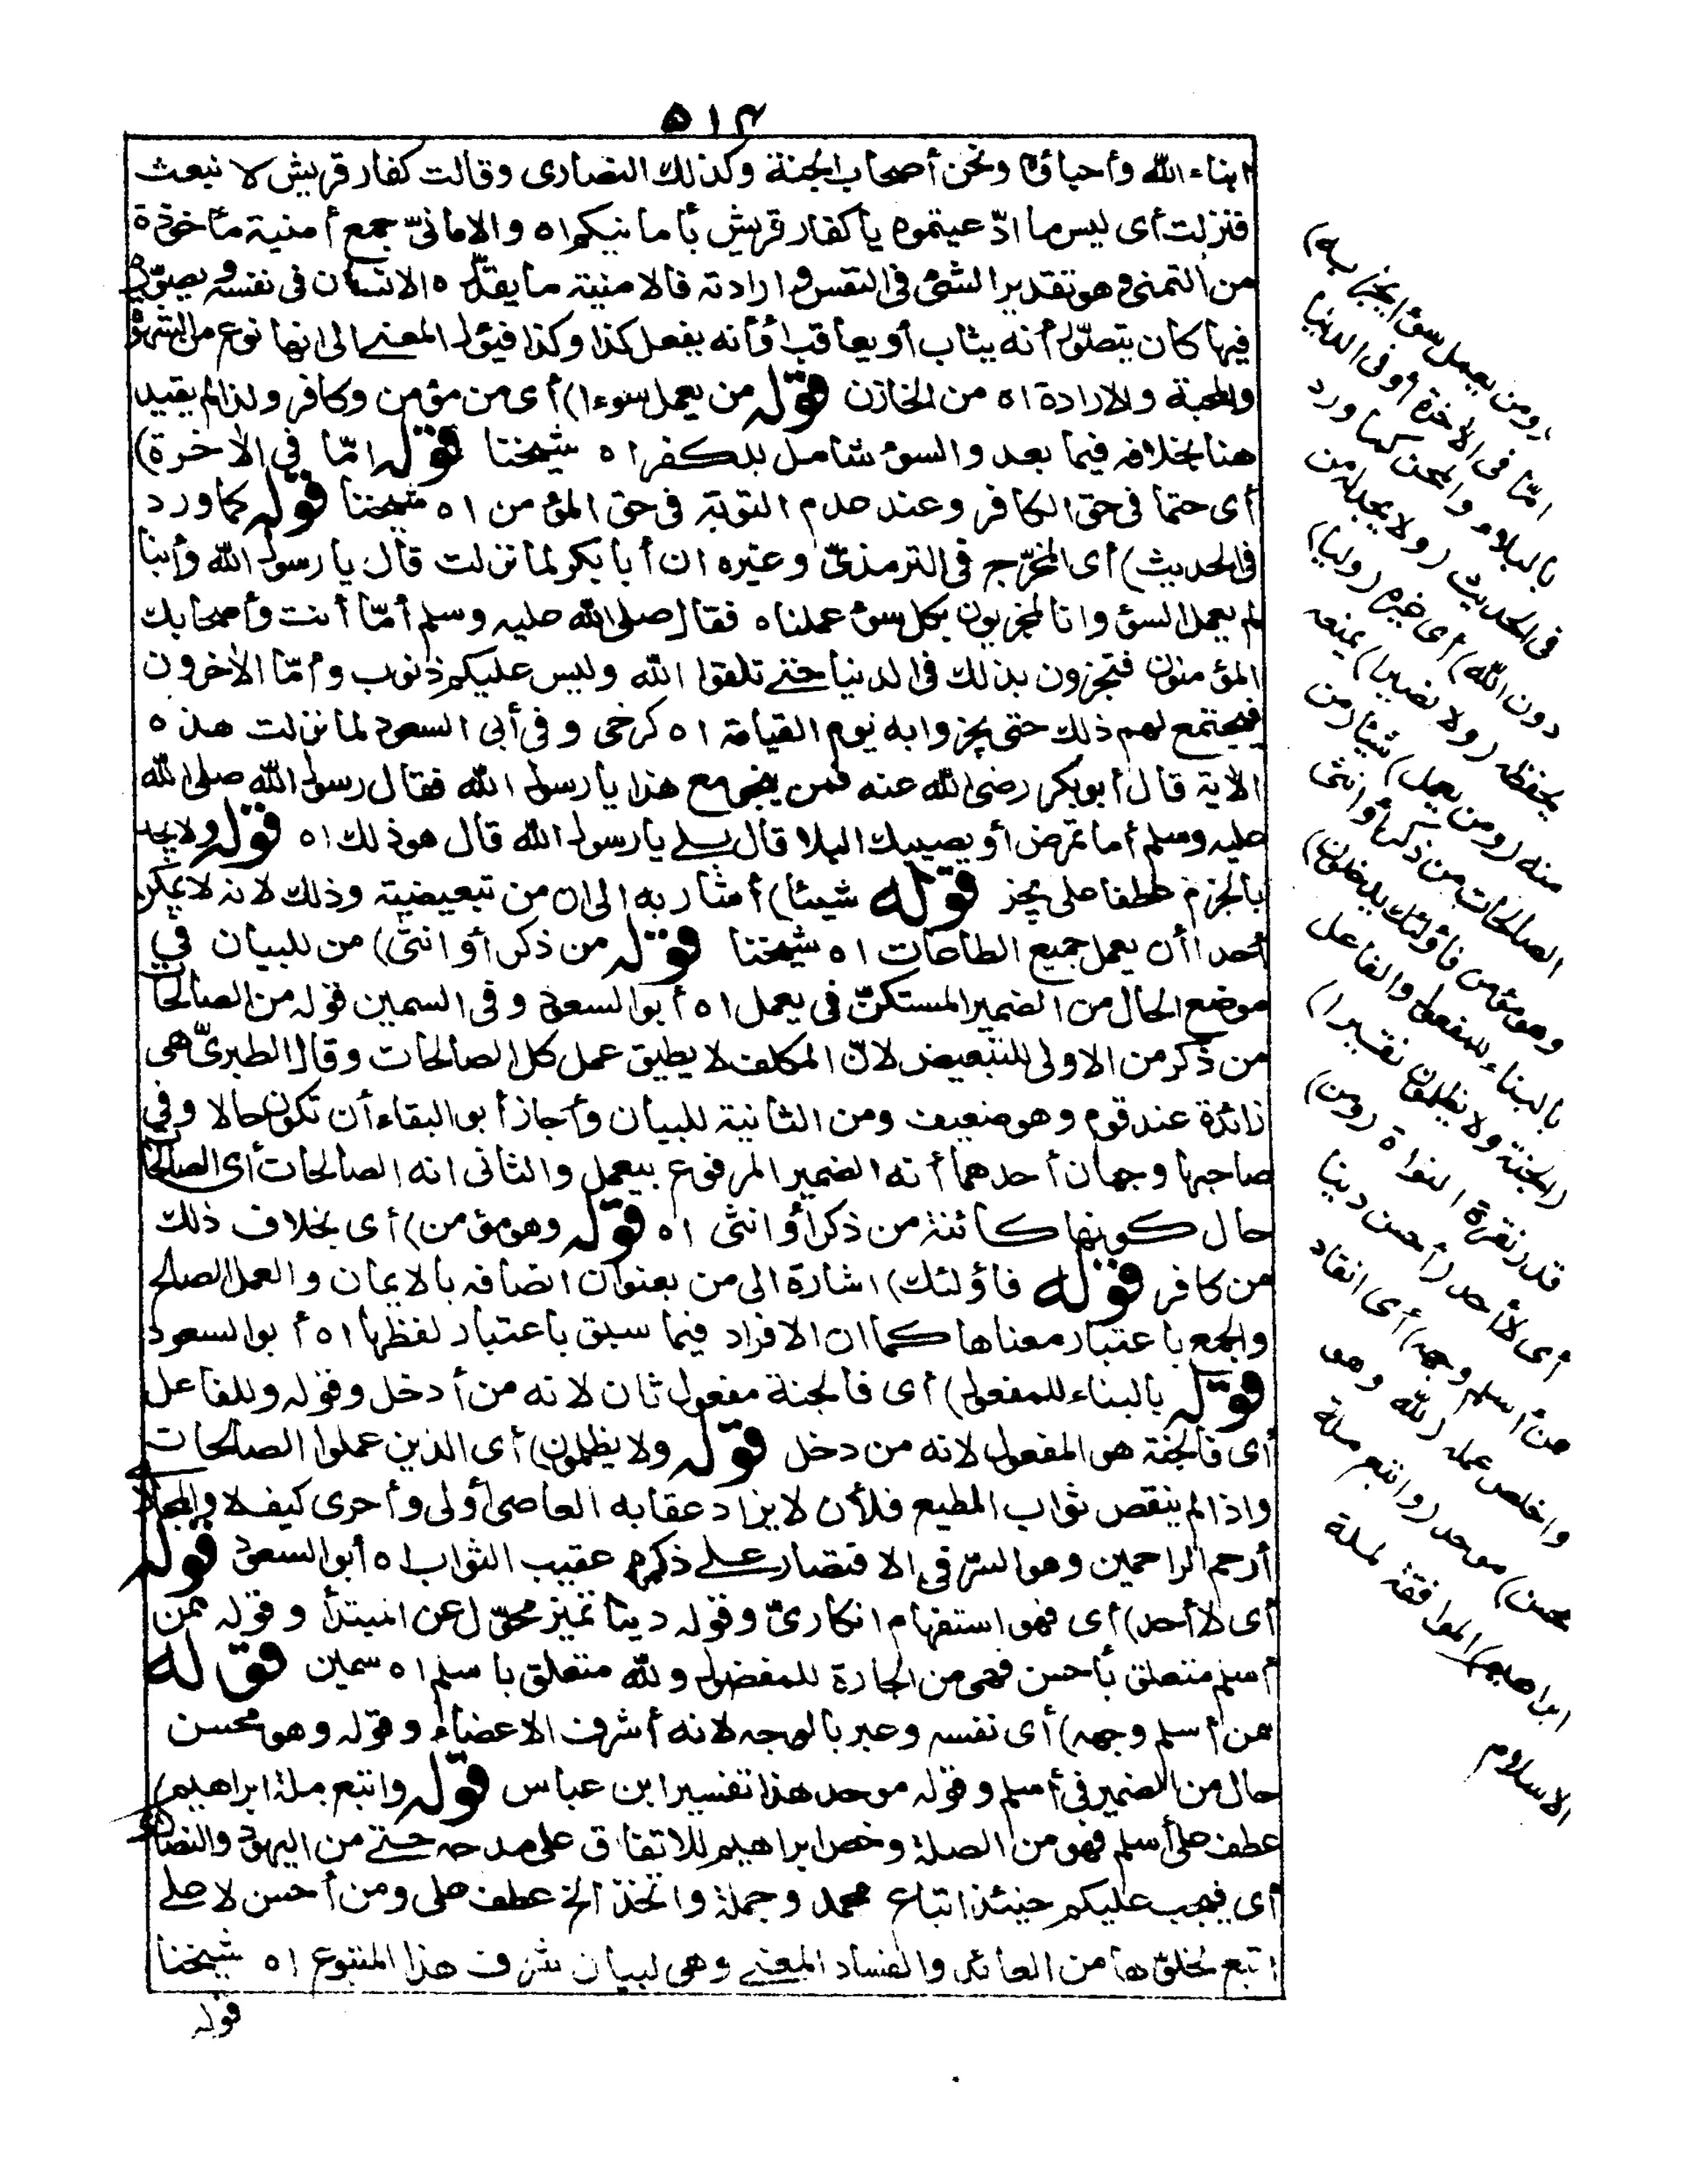 ٥١٤
ابناء الله وأحباؤه ونحن أصحاب الجنة وكذلك النصارى وقالت كفار قريش لا نبعث
فنزلت أى ليس ما ادّعيتموه يا كفار قريش بأمانيكم اه والامانىّ جمع أمنية مأخوذة
من التمنى وهو تقدير الشئ فى النفس وارادته فالامنية ما يقدّره الانسان فى نفسه ويصوّره
فيها كان يتصوّر أنه يثاب أو يعاقب أو أنه يفعل كذا وكذا فيؤل المعنى الى انها نوع من الشهوة
والمحبة والارادة اه من الخازن قوله من يعمل سوءا) أى من مؤمن وكافر ولذا لم يقيد
هنا بخلافه فيما بعد والسوء شامل للكفر اه شيخنا قوله امّا فى الآخرة)
أى حتما فى حق الكافر وعند عدم التوبة فى حق المؤمن اه شيخنا قوله كما ورد
فى الحديث) أى المخرّج فى الترمذىّ وغيره ان أبا بكر لما نزلت قال يا رسول الله وأينا
لم يعمل السوء وانا لمجزيون بكل سوء عملناه فقال صلى الله عليه وسلم أمّا أنت وأصحابك
المؤمنون فتجزون بذلك فى الدنيا حتى تلقوا الله وليس عليكم ذنوب وأمّا الآخرون
فيجتمع لهم ذلك حتى يجزوا به يوم القيامة اه كرخى وفى أبى السعود لما نزلت هذه
الآية قال أبو بكر رضى الله عنه فمن ينجى مع هذا يا رسول الله فقال رسول الله صلى الله
عليه وسلم أما تمرض أو يصيبك البلا قال بلى يا رسول الله قال هو ذلك اه قوله ولا يجد
بالجزم عطفا على يجز قوله شيئا) أشار به الى ان من تبعيضية وذلك لانه لا يمكن
أحدا أن يعمل جميع الطاعات اه شيخنا قوله من ذكر أو انثى) من للبيان فى
موضع الحال من الضمير المستكنّ فى يعمل اه أبو السعود وفى السمين قوله من الصالحات
من ذكر من الاولى للتبعيض لانّ المكلف لا يطيق عمل كل الصالحات وقال الطبرىّ هى
زائدة عند قوم وهو ضعيف ومن الثانية للبيان وأجاز أبو البقاء أن تكون حالا وفى
صاحبها وجهان أحدهما أنه الضمير المرفوع بيعمل والثانى انه الصالحات أى الصالحات
حال كونها كائنة من ذكر أو انثى اه قوله وهو مؤمن) أى بخلاف ذلك
من كافر قوله فاؤلئك) اشارة الى من بعنوان اتصافه بالايمان والعمل الصالح
والجمع باعتبار معناها كما ان الافراد فيما سبق باعتبار لفظها اه أبو السعود
قوله بالبناء للمفعول) أى فالجنة مفعول ثان لانه من أدخل وقوله وللفاعل
أى فالجنة هى المفعول لانه من دخل قوله ولا يظلمون) أى الذين عملوا الصالحات
واذا لم ينقص ثواب المطيع فلأن لا يزاد عقابه العاصى أولى وأحرى كيف لا والمجازى
أرحم الراحمين وهو السرّ فى الاقتصار على ذكره عقيب الثواب اه أبو السعود قوله
أى لا أحد) أى فهو استفهام انكارىّ وقوله دينا تمييز محوّل عن المبتدأ وقوله ممن
أسلم متعلق بأحسن فهى من الجارة للمفضول ولله متعلق باسلم اه سمين قوله
ممن أسلم وجهه) أى نفسه وعبر بالوجه لانه أشرف الاعضاء وقوله وهو محسن
حال من الضمير فى أسلم وقوله موحد هذا تفسير ابن عباس قوله واتبع ملة ابراهيم)
عطف على أسلم فهو من الصلة وخص ابراهيم للاتفاق على مدحه حتى من اليهود والنصارى
أى فيجب عليكم حينئذ اتباع محمد وجملة واتخذ الخ عطف على ومن أحسن لا على
اتبع لخلوّها من العائد والفساد المعنى وهى لبيان شرف هذا المتبوع اه شيخنا
قوله
(ومن يعمل سوءا يجز به)
امّا فى الآخرة أو فى الدنيا
بالبلاء والمحن كما ورد
فى الحديث (ولا يجد له من
دون الله) أى غيره (وليا)
يحفظه (ولا نصيرا) يمنعه
منه (ومن يعمل) شيئا (من
الصالحات من ذكر أو انثى
وهو مؤمن فاؤلئك يدخلون)
بالبناء للمفعول والفاعل
(الجنة ولا يظلمون نقيرا)
قدر نقرة النواة (ومن)
أى لا أحد (أحسن دينا
ممن أسلم وجهه) أى انقاد
واخلص عمله (لله وهو
محسن) موحد (واتبع ملة
ابراهيم) الموافقة لملة
الاسلام